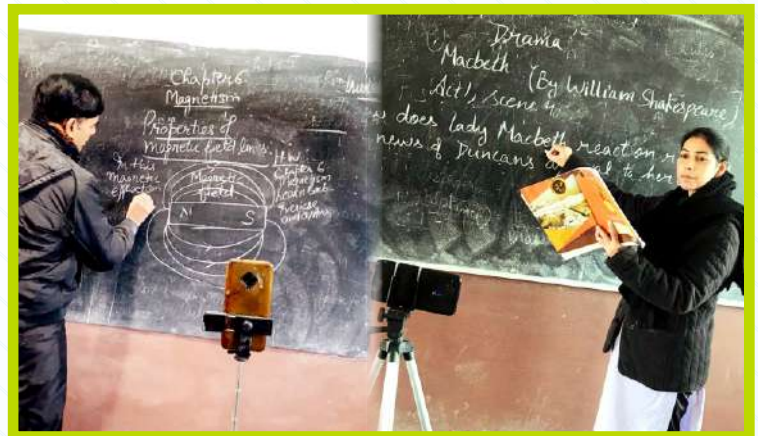 Chapter 6
Magnetism
Properties of
magnetic field lines.
In this
magnetic
effection
Magnetic
field
N S
H.W
Chapter 6
Magnetism
Exercise
Drama
Macbeth (By William Shakespeare)
Act 1, Scene
does lady Macbeth reaction
news of Duncans to her